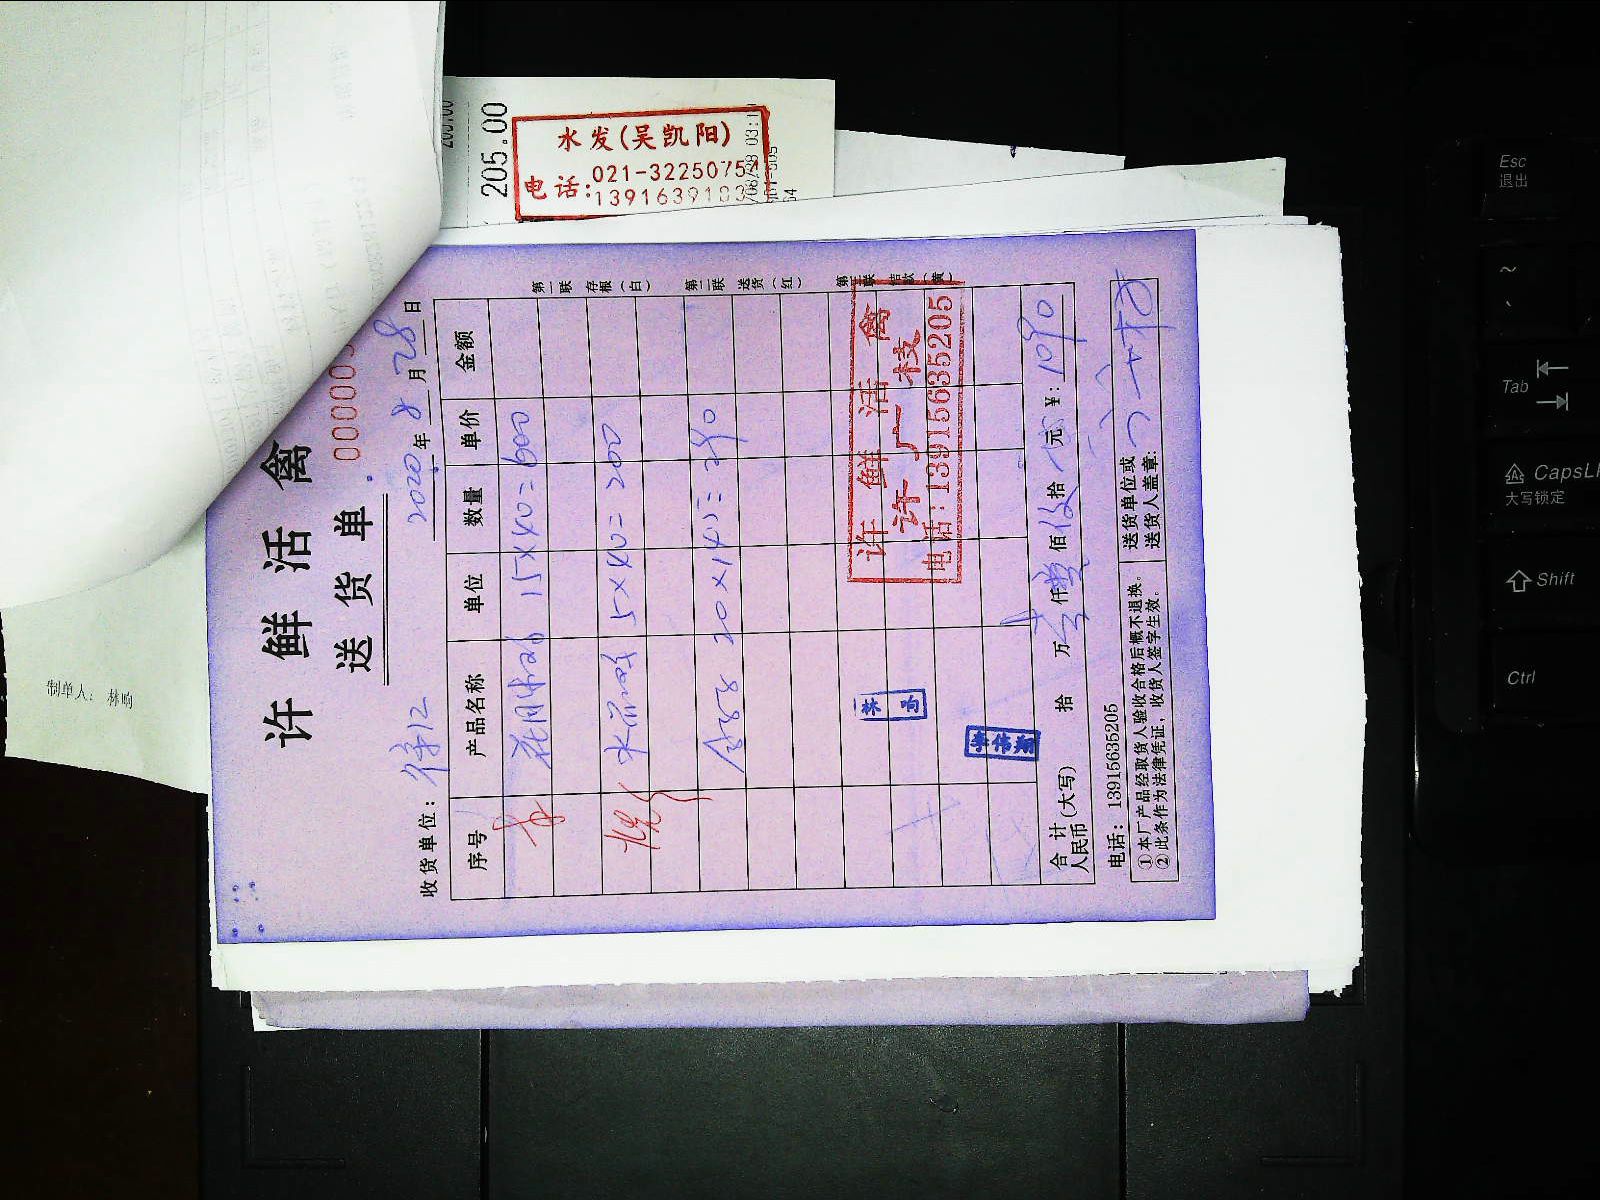 205.00
水发(吴凯阳)
021-3225075
电话:
制单人: 林响
许鲜活禽
送货单
2020年8月28日
收货单位: 徐汇
序号 产品名称 单位 数量 单价 金额
15×40=600
5×40=200
20×14.5=290
第一联 存根(白)
第二联 送货(红)
第三联 结款(黄)
许鲜活禽
许广枝
电话:13915635205
李伟翔
合计
人民币(大写) 拾 万 仟 佰 拾 元 ¥: 1090
电话: 13915635205
①本厂产品经取货人验收合格后概不退换。
②此条作为法律凭证，收货人签字生效。
送货单位或
送货人盖章:
Esc
退出
Tab
CapsL
大写锁定
Shift
Ctrl